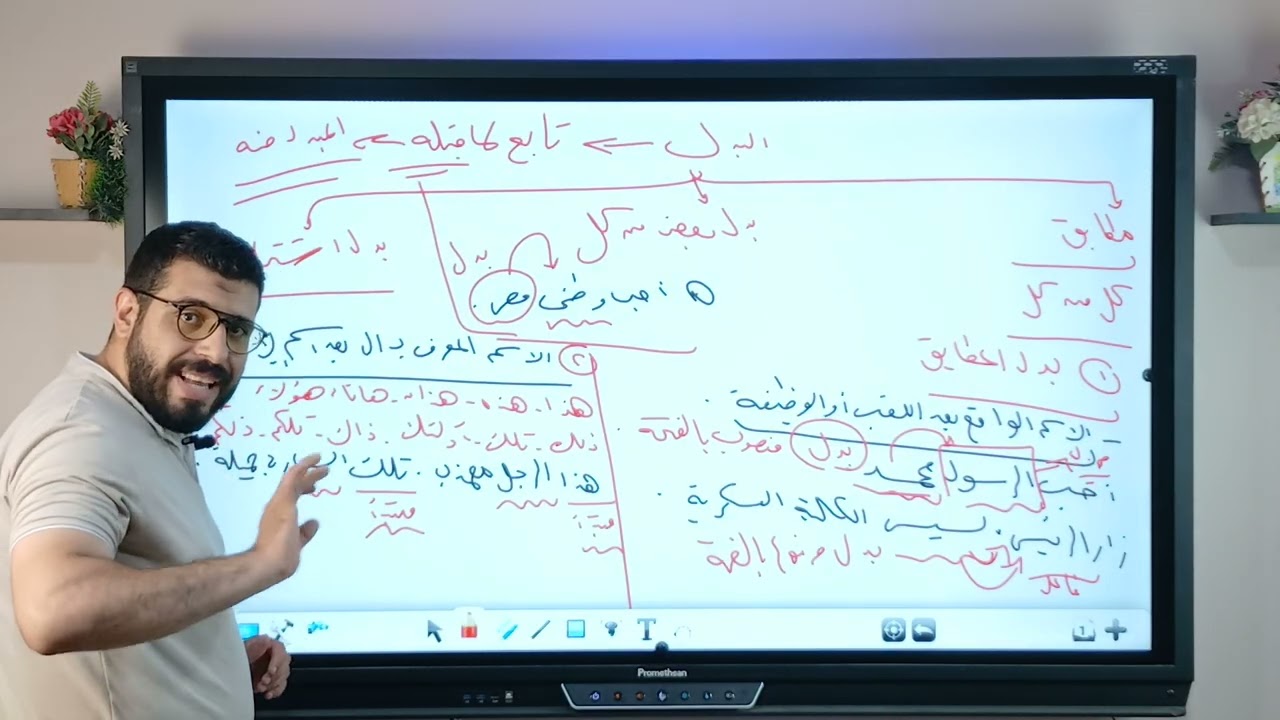 البدل ← تابع لما قبله ← المبدل منه
مطابق
كل من كل
بدل بعض من كل
بدل اشتـ
بدل
① أحب وطني مصر.
① بدل المطابق
- الاسم الواقع بعد اللقب أو الوظيفة.
أحب الرسول محمد
بدل منصوب بالفتحة
زار الرئيس السيسي الكلية العسكرية.
بدل مرفوع بالضمة
فاعل
② الاسم المعرف بـ ال بعد اسم
هذا - هذه - هذان - هاتان، هؤلاء
ذلك - تلك - أولئك - ذاك - تلكم - ذلكم
هذا الرجل مهذب. تلك جميلة.
مبتدأ
مبتدأ
T
1
Promethean